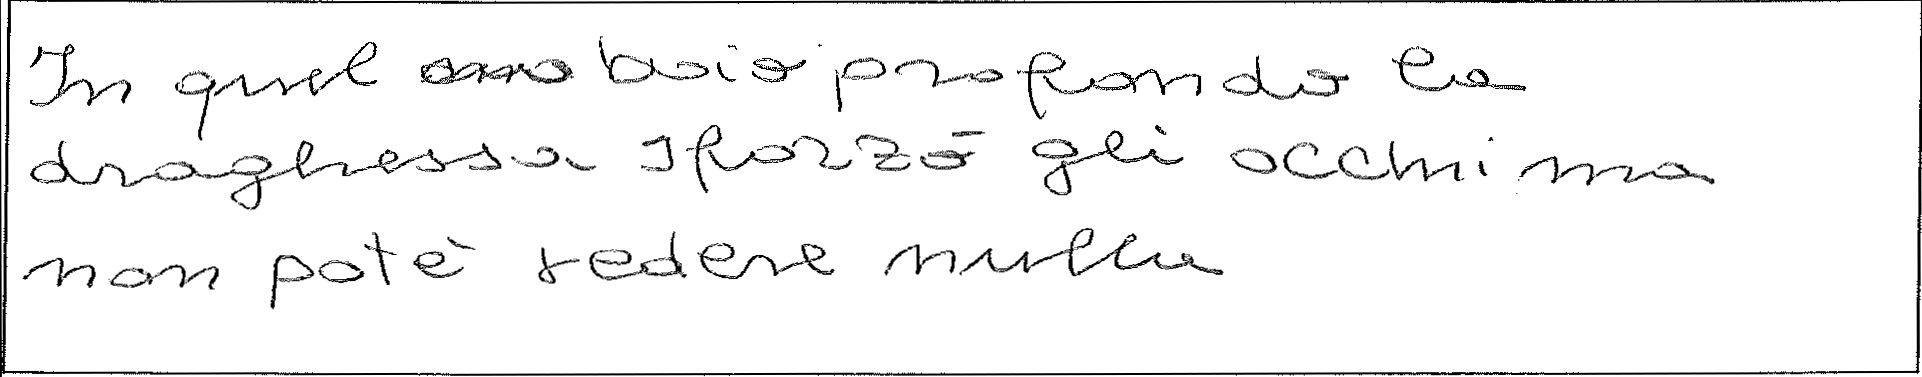 In quel buio profondo la
draghessa sforzò gli occhi ma
non potè vedere nulla